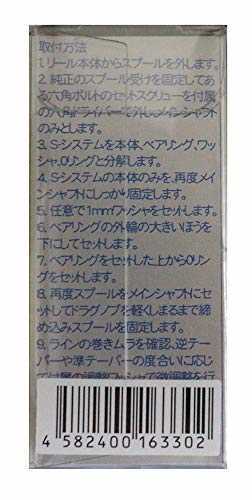 取付方法
1. リール本体からスプールを外します。
2. 純正のスプール受けを固定してあ
る六角ボルトのセットスクリューを付属
の六角ドライバーで外しメインシャフト
のみとします。
3. S-システムを本体、ベアリング、ワッ
シャ、Oリングと分解します。
4. S-システムの本体のみを、再度メイ
ンシャフトにしっかり固定します。
5. 任意で1mmワッシャをセットします。
6. ベアリングの外輪の大きいほうを
下にしてセットします。
7. ベアリングをセットした上からOリン
グをセットします。
8. 再度スプールをメインシャフトにセ
ットしてドラグノブを軽くしまるまで締
め込みスプールを固定します。
9. ラインの巻きムラを確認、逆テー
パーや準テーパーの度合いに応じ
て付属の調整ワッシャで微調整を行
4 582400 163302